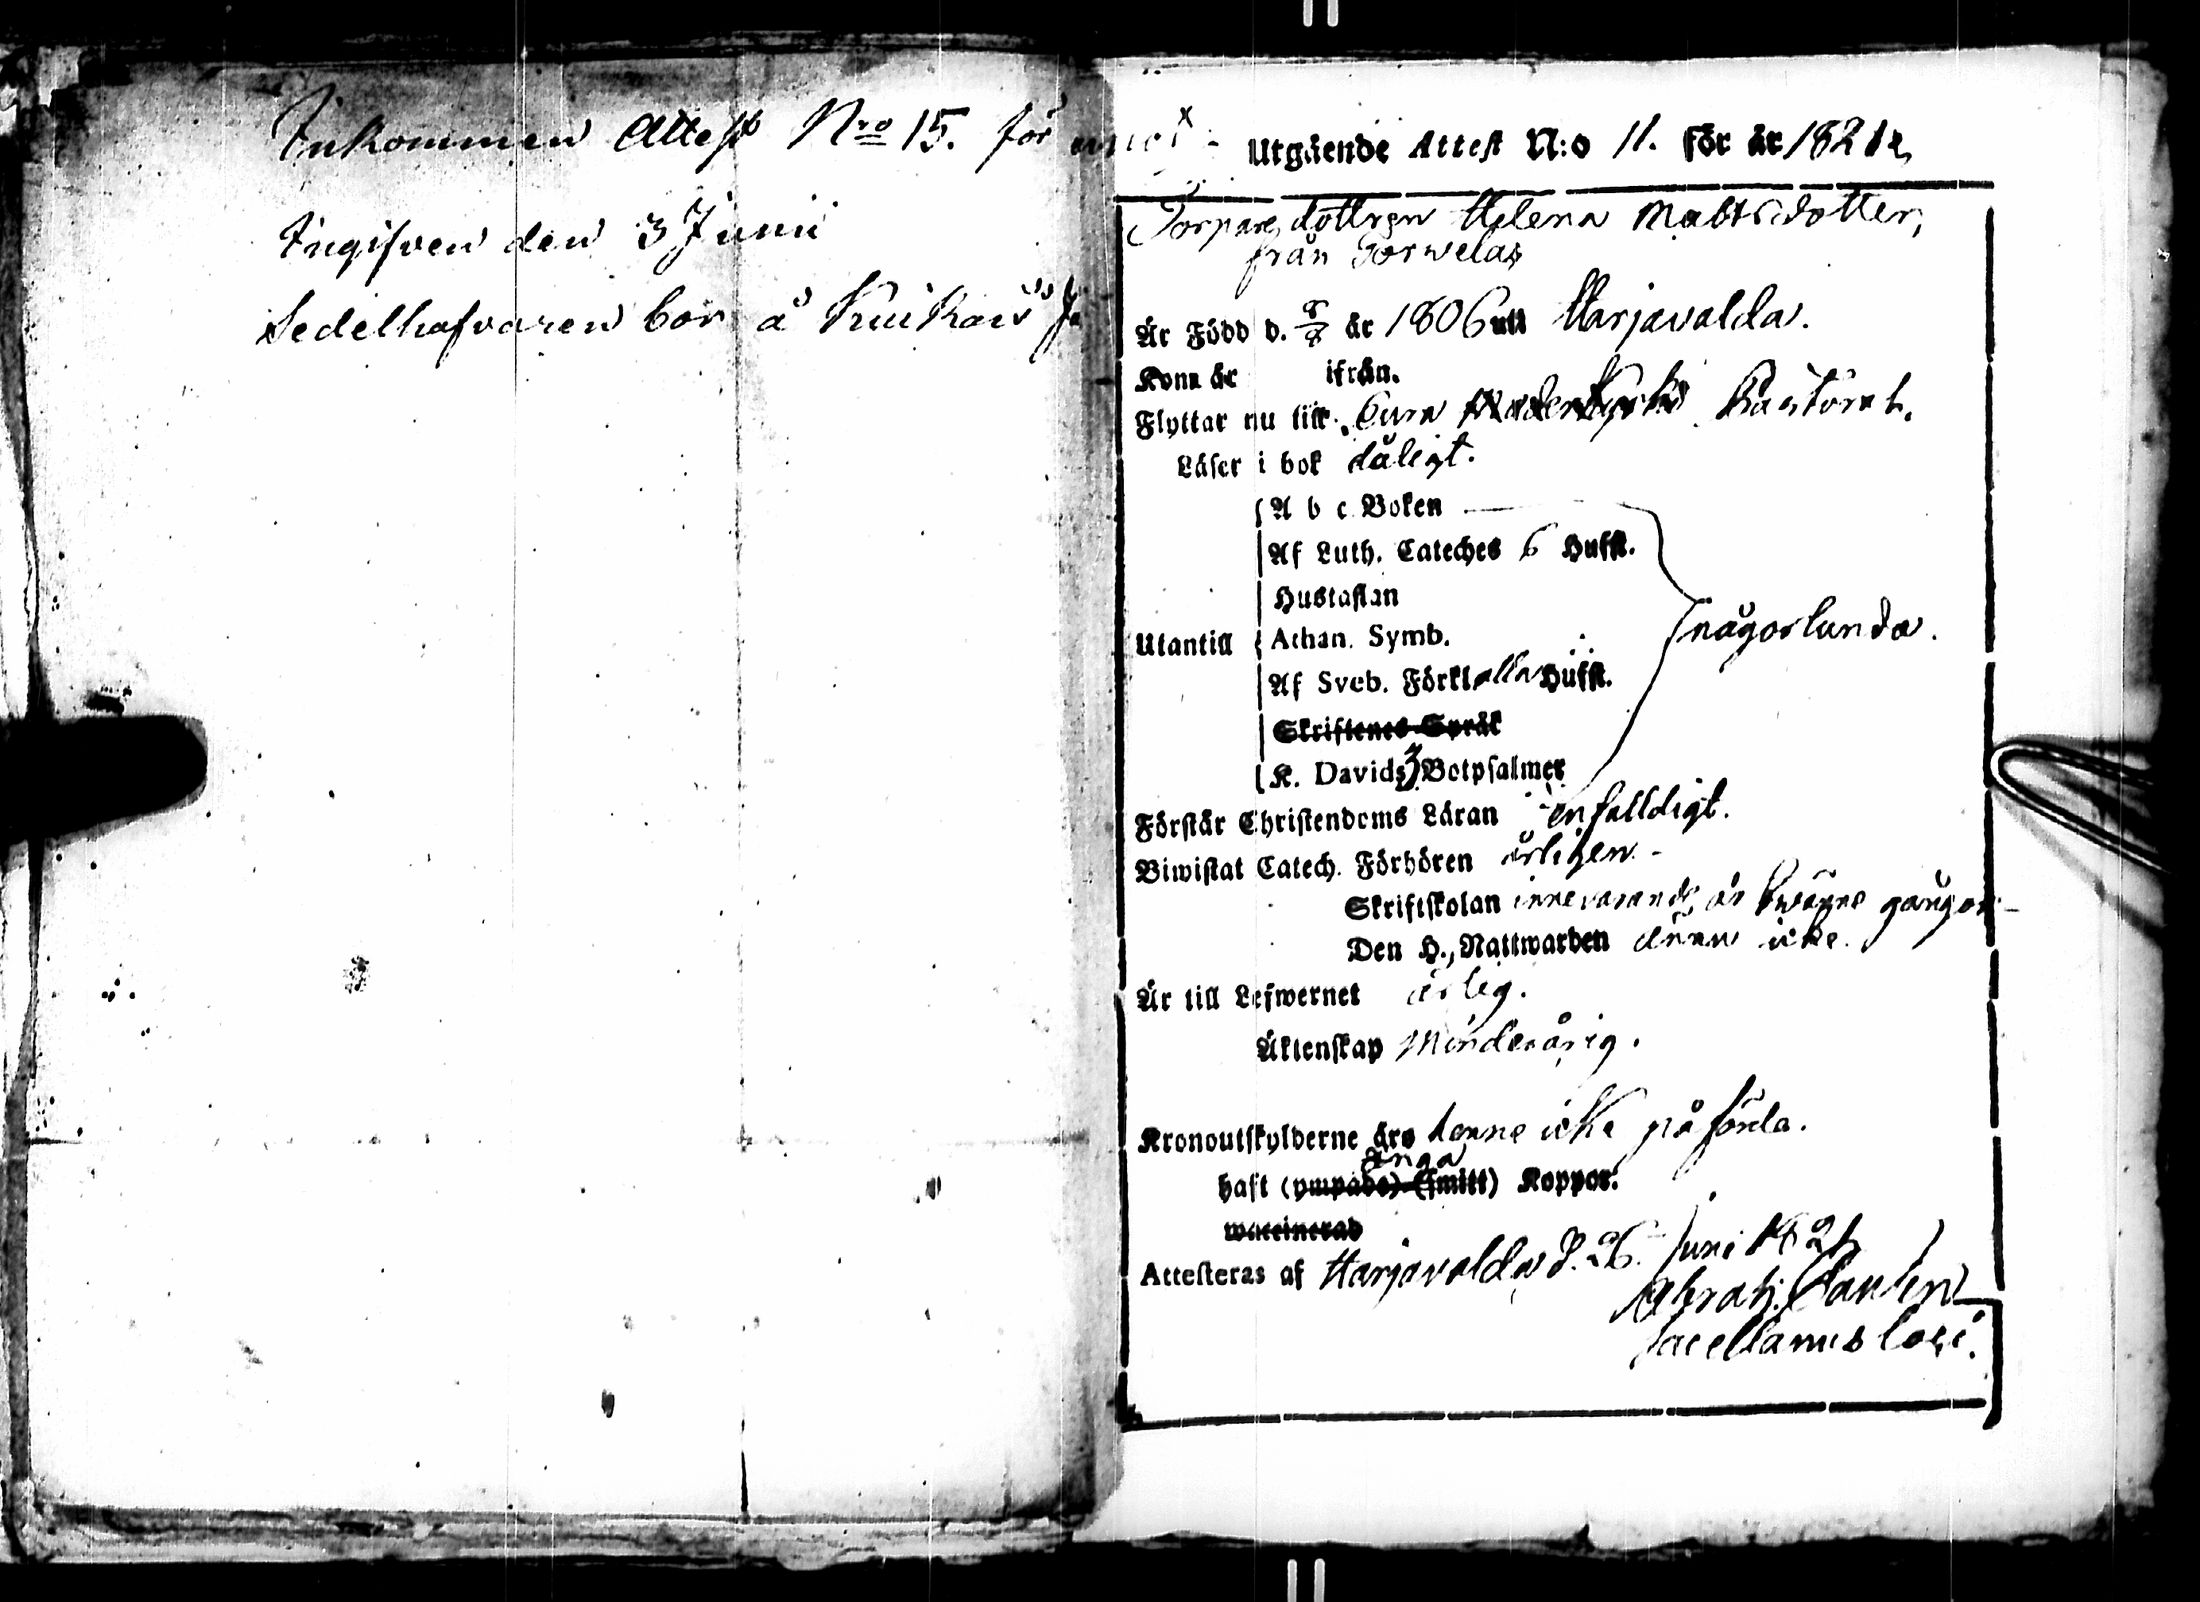 Inkommen Attest Nro 15. för
Ingifven den 3 Junii
Sedelhafvaren bor å
Utgående Attest N:o 11. för år 1821
Torpare dottren Helena Mattsdotter,
från Torwela
Är Född d. 8/8 år 1806 uti Harjavalda.
Kom år ifrån.
Flyttar nu till Eura Moderkyrko Pastorat.
Läser i bok dåligt.
A b c Boken
Af Luth. Cateches 6 Hufst.
Hustaflan
någorlunda.
Utantill Athan. Symb.
Af Sveb. Förkl. alla Hufst.
Skriftenes Språk
K. Davids 3 Botpsalmer
Förstår Christendoms Läran enfalldigt.
Biwistat Catech. Förhören årligen.
Skriftskolan innevarande år twänne gångor
Den H. Nattwarden ännu icke.
Är till Lefwernet ärlig.
Äktenskap Minderårig.
Kronoutskylderne äro henne icke på förda.
inga
haft (ympade) (smitt) Koppor.
waccinerad
Attesteras af Harjavalda d. 26 Juni 1821
Abrah.
Sacellanus loci.